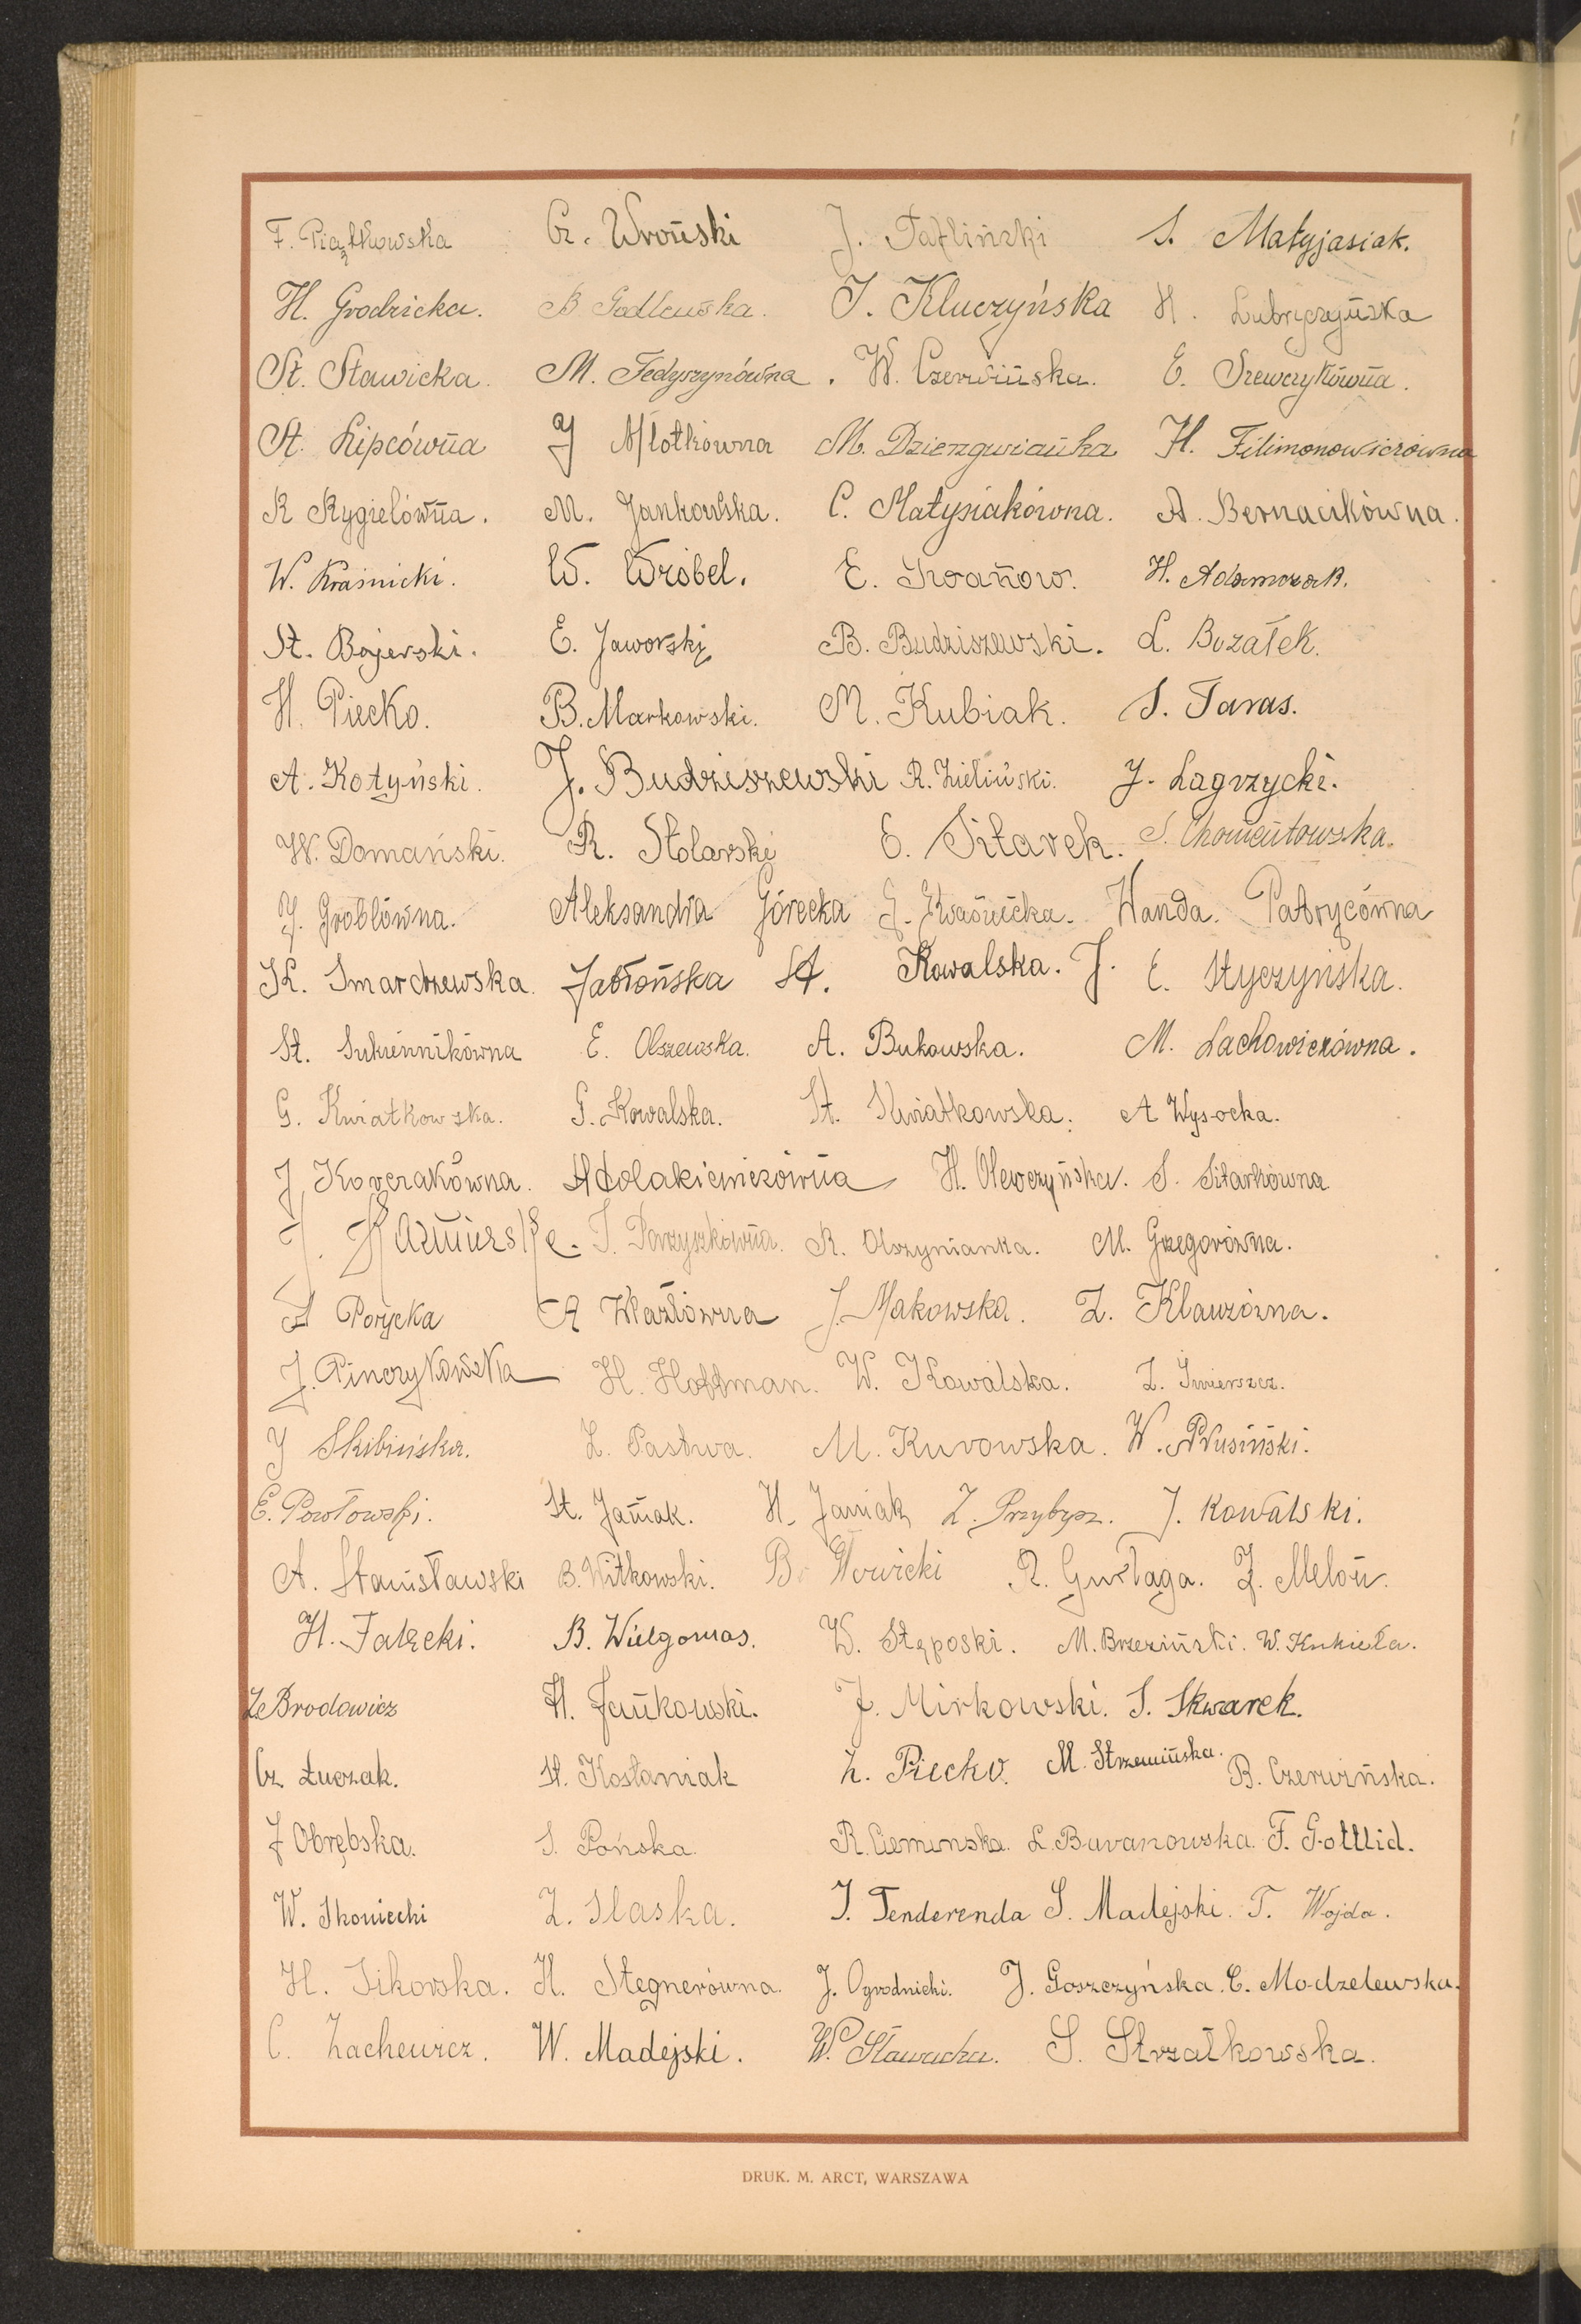 F. Piątkowska Cz. Wroński J. Tafliński S. Matyjasiak.
H. Grodzicka. B. Godlewska. J. Kluczyńska H. Lubryczyńska
St. Sławicka. M. Fedyszynówna. W. Czerwińska. E. Szewczykówna.
St. Lipcówna J Młotkówna M. Dziergwianka H. Filimonowiczówna
R Rygielówna. M. Jankowska. C. Matysiakówna. A. Bernacikówna.
W. Kraśnicki. W. Wróbel. E. Iwanow. H. Adamczak.
St. Bojerski. E. Jaworski B. Budziszewski. L. Buzałek.
H. Piecko. B. Markowski. M. Kubiak. S. Taras.
A. Kotyński. J. Budziszewski R. Zieliński. J. Łagrzycki.
W. Domański. R. Stolarski E. Sitarek. S. Chomentowska.
J. Groblówna. Aleksandra Górecka J. Kwaśnicka. Wanda. Patrycówna
K. Smardzewska. Jabłońska St. Kowalska. J. E. Styczyńska.
St. Sukiennikówna E. Olszewska. A. Bukowska. M. Lachowiczówna.
G. Kwiatkowska. G. Kowalska. St. Kwiatkowska. A Wysocka.
J. Kaczrakówna. H. Olewczyńska. S. Sitarkówna
J. Kaźmierska. J. Parzyszkówna. R. Olszynianka. M. Grzegorówna.
A Porycka A Wazłówna J. Makowska. Z. Klauzówna.
J. Pinczykowska H. Hoffman. W. Kowalska. Z. Świerszcz.
J Skibińska. Z. Pastwa. M. Kurowska. W. Prusiński.
E. Powłowski. St. Janiak. H. Janiak Z. Przybysz. J. Kowalski.
A. Stanisławski B. Witkowski. B. Nowicki R. Gwłaga. Z. Meloń.
H. Falęcki. B. Wielgomas. W. Stęposki. M. Brzeziński. W. Kukieła.
Ze Brodowicz H. Jankowski. J. Mirkowski. S. Skwarek.
Cz Łuczak. St. Kostaniak Z. Piecko. M. Strzemińska. B. Czerwińska.
J Obrębska. S. Pońska R. Ciemińska. L. Buvanowska. F. Gottlid.
W. Skoniecki Z. Ślaska. J. Tenderenda S. Madejski. T. Wojda.
H. Sikorska. H. Stegnerówna. J. Ogrodnicki. J. Goszczyńska. C. Modzelewska.
C. Zachewicz. W. Madejski. W. Sławucka. S. Strzałkowska.
DRUK. M. ARCT, WARSZAWA